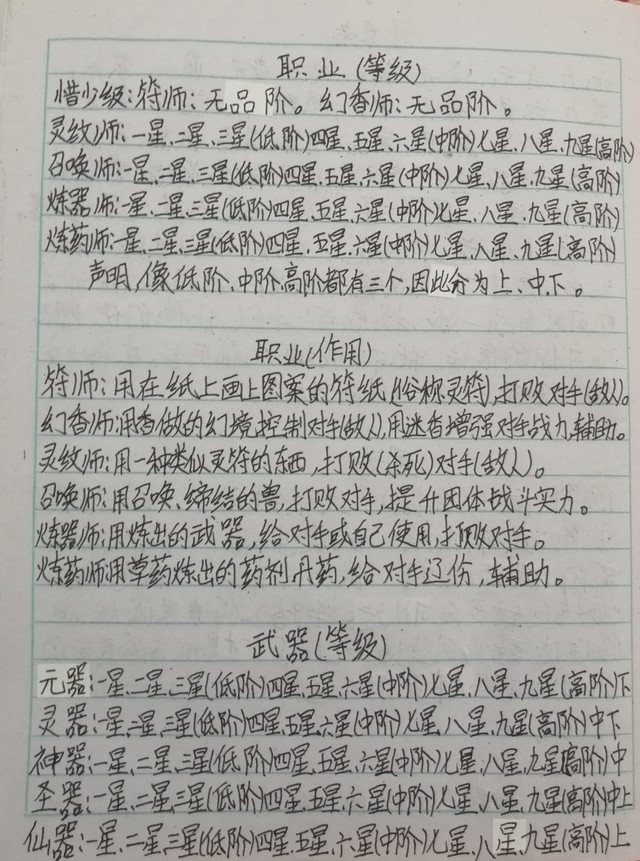 职业(等级)
惜少级:符师:无品阶。幻香师:无品阶。
灵纹师:一星、二星、三星(低阶)四星、五星、六星(中阶)七星、八星、九星(高阶)
召唤师:一星、二星、三星(低阶)四星、五星、六星(中阶)七星、八星、九星(高阶)
炼器师:一星、二星、三星(低阶)四星、五星、六星(中阶)七星、八星、九星(高阶)
炼药师:一星、二星、三星(低阶)四星、五星、六星(中阶)七星、八星、九星(高阶)
声明,像低阶、中阶、高阶都有三个,因此分为上、中、下。
职业(作用)
符师:用在纸上画上图案的符纸(俗称灵符),打败对手(敌人)。
幻香师:用香做的幻境,控制对手(敌人),用迷香增强对手战力,辅助。
灵纹师:用一种类似灵符的东西,打败(杀死)对手(敌人)。
召唤师:用召唤、缔结的兽,打败对手,提升团体战斗实力。
炼器师:用炼出的武器,给对手或自己使用,打败对手。
炼药师:用草药炼出的药剂、丹药,给对手辽伤,辅助。
武器(等级)
元器:一星、二星、三星(低阶)四星、五星、六星(中阶)七星、八星、九星(高阶)下
灵器:一星、二星、三星(低阶)四星、五星、六星(中阶)七星、八星、九星(高阶)中下
神器:一星、二星、三星(低阶)四星、五星、六星(中阶)七星、八星、九星(高阶)中
圣器:一星、二星、三星(低阶)四星、五星、六星(中阶)七星、八星、九星(高阶)中上
仙器:一星、二星、三星(低阶)四星、五星、六星(中阶)七星、八星、九星(高阶)上